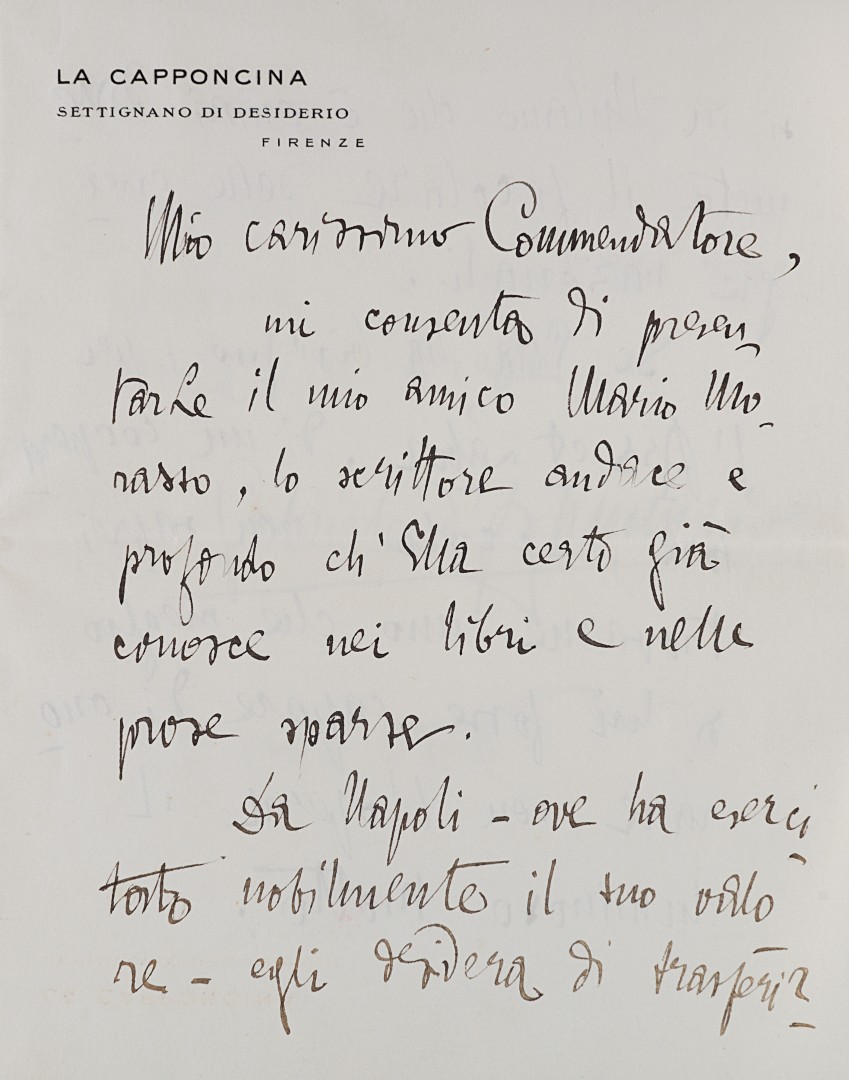 LA CAPPONCINA
SETTIGNANO DI DESIDERIO
FIRENZE
Mio carissimo Commendatore,
mi consenta di presen-
tarLe il mio amico Mario Mo-
rasso, lo scrittore audace e
profondo ch'Ella certo già
conosce nei libri e nelle
prose sparse.
Da Napoli - ove ha eserci-
tato nobilmente il suo valo-
re - egli desidera di trasferir-